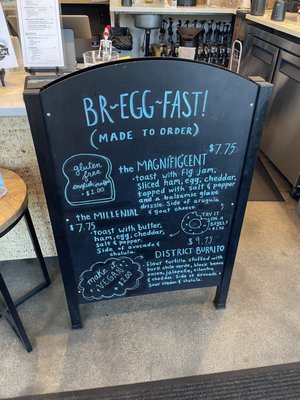 BR-EGG-FAST!
(MADE TO ORDER)
gluten
free
english muffin
+ $1.00
the MAGNIFICENT
$7.75
toast with fig jam,
sliced ham, egg, cheddar,
topped with salt & pepper
and a balsamic glaze
drizzle. Side of arugula
& goat cheese
the MILLENIAL
$7.75
toast with butter,
ham, egg, cheddar,
salt & pepper.
Side of avocado &
cholula.
TRY IT
ON A
BAGEL!
$9.75
DISTRICT BURRITO
flour tortilla stuffed with
pork chile verde, black beans,
onion, jalapeño, cilantro,
& cheddar. Side of avocado,
sour cream & cholula.
make it
VEGAN
+ $2.00